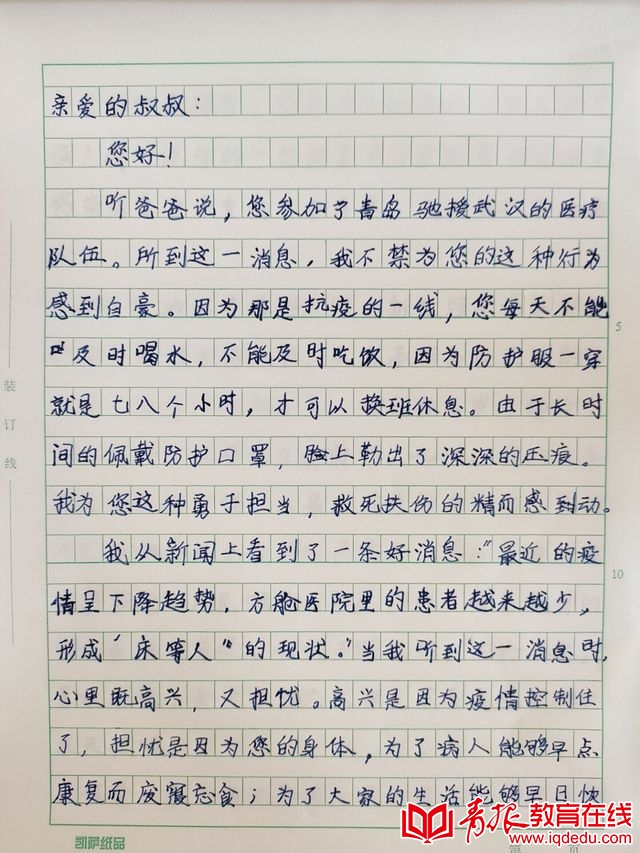 亲爱的叔叔：
您好！
听爸爸说，您参加了青岛驰援武汉的医疗
队伍。所到这一消息，我不禁为您的这种行为
感到自豪。因为那是抗疫的一线，您每天不能
及时喝水，不能及时吃饭，因为防护服一穿
就是七八个小时，才可以换班休息。由于长时
间的佩戴防护口罩，脸上勒出了深深的压痕。
我为您这种勇于担当，救死扶伤的精而感到动。
我从新闻上看到了一条好消息："最近的疫
情呈下降趋势，方舱医院里的患者越来越少，
形成"床等人"的现状。"当我听到这一消息时，
心里既高兴，又担忧。高兴是因为疫情控制住
了，担忧是因为您的身体，为了病人能够早点
康复而废寝忘食；为了大家的生活能够早日恢
5
10
装
订
线
凯萨纸品
青报教育在线
www.iqdedu.com